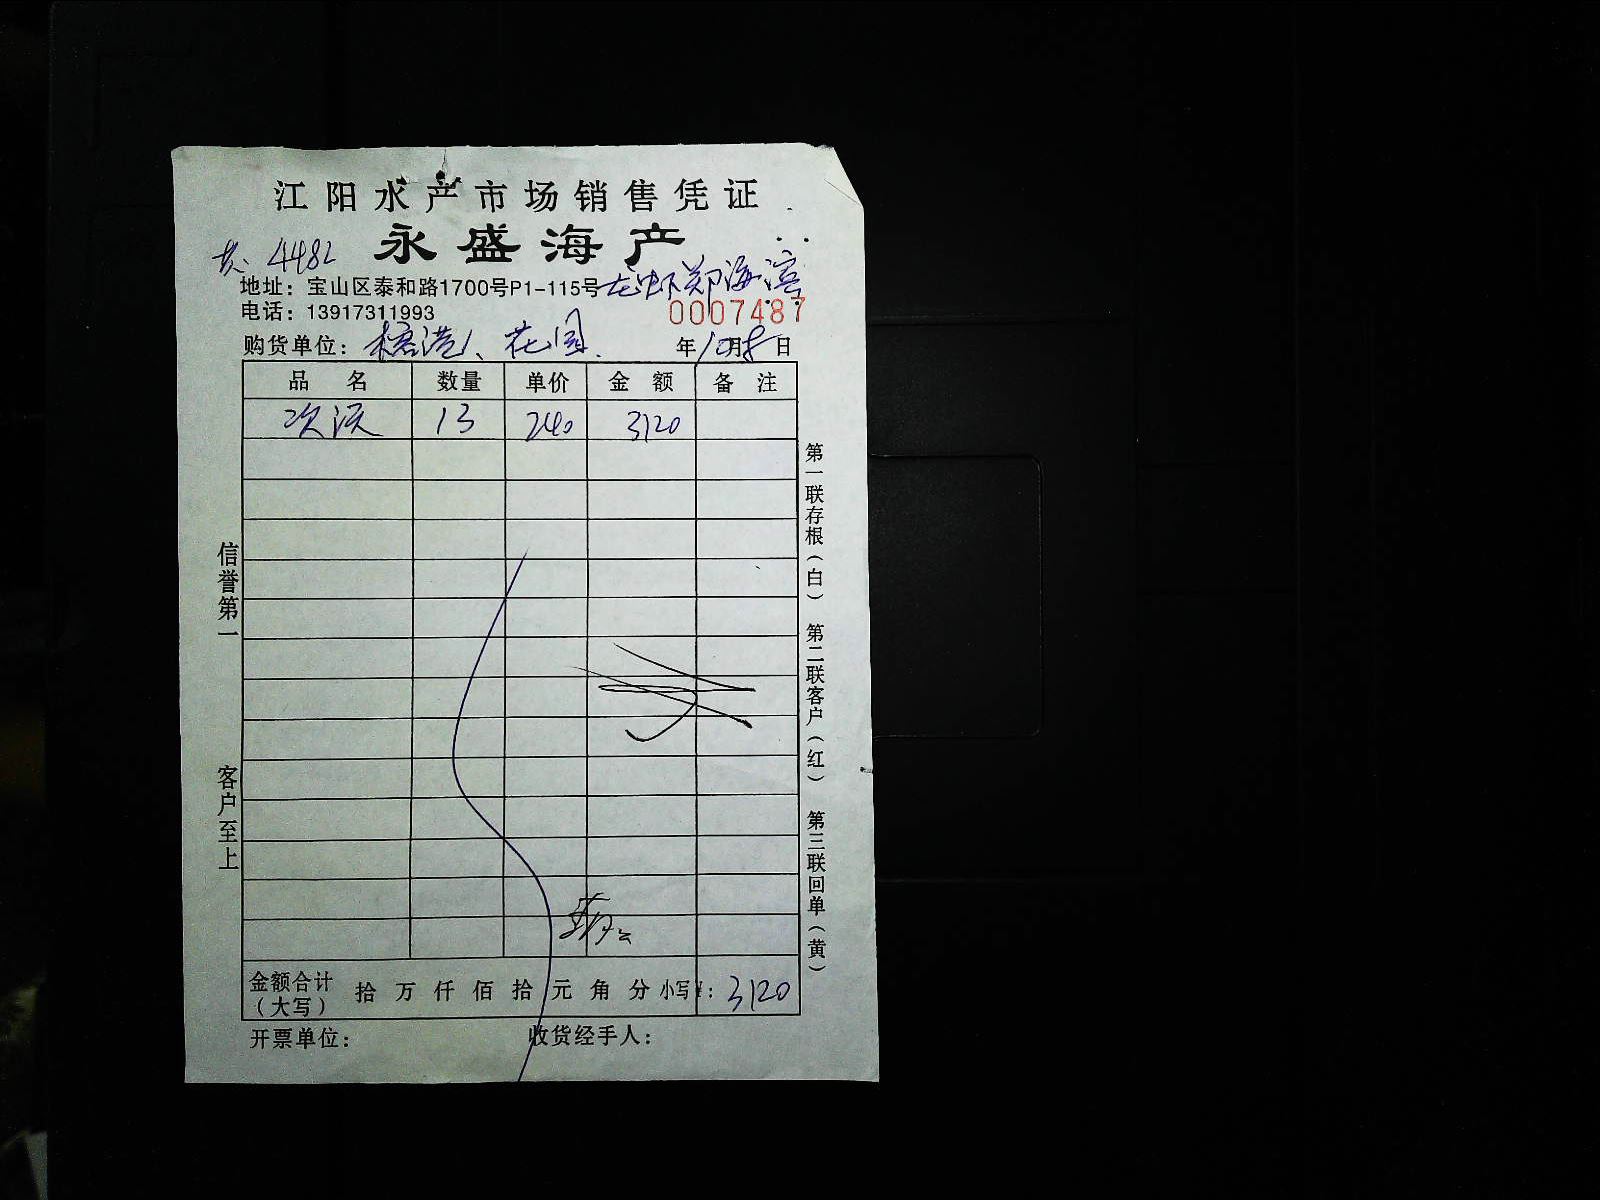 江阳水产市场销售凭证
4482 永盛海产
地址：宝山区泰和路1700号P1-115号 龙虾郑海滨
电话：13917311993 0007487
购货单位： 榕港、花园. 年10月8日
品名 数量 单价 金额 备注
13 240 3120
信誉第一 客户至上
第一联存根（白） 第二联客户（红） 第三联回单（黄）
金额合计（大写） 拾 万 仟 佰 拾 元 角 分 小写¥：3120
开票单位： 收货经手人：